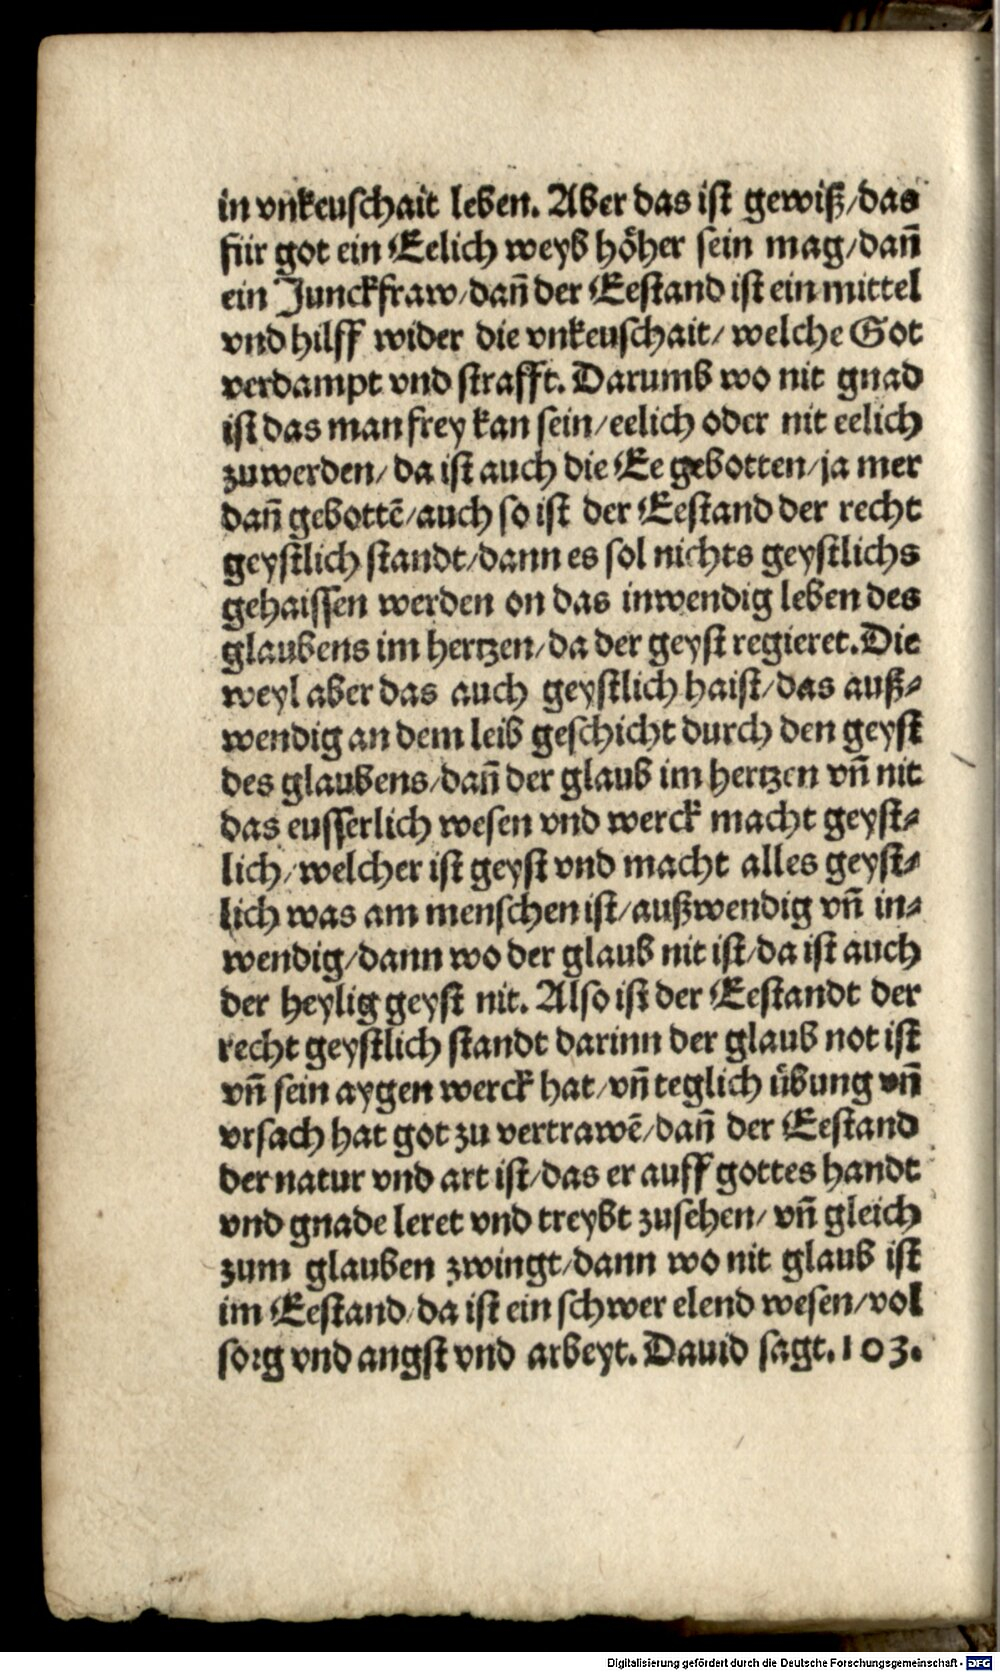 in vnkeuschait leben. Aber das ist gewiß/das
für got ein Eelich weyb höher sein mag/dañ
ein Junckfraw/dañ der Eestand ist ein mittel
vnd hilff wider die vnkeuschait/welche Got
verdampt vnd strafft. Darumb wo nit gnad
ist das man frey kan sein/eelich oder nit eelich
zuwerden/da ist auch die Ee gebotten/ja mer
dañ gebottē/auch so ist der Eestand der recht
geystlich standt/dann es sol nichts geystlichs
gehaissen werden on das inwendig leben des
glaubens im hertzen/da der geyst regieret. Die
weyl aber das auch geystlich haist/das auß⸗
wendig an dem leib geschicht durch den geyst
des glaubens/dañ der glaub im hertzen vñ nit
das eusserlich wesen vnd werck macht geyst⸗
lich/welcher ist geyst vnd macht alles geyst⸗
lich was am menschen ist/außwendig vñ in⸗
wendig/dann wo der glaub nit ist/da ist auch
der heylig geyst nit. Also ist der Eestandt der
recht geystlich standt darinn der glaub not ist
vñ sein aygen werck hat/vñ teglich übung vñ
vrsach hat got zu vertrawē/dañ der Eestand
der natur vnd art ist/das er auff gottes handt
vnd gnade leret vnd treybt zusehen/vñ gleich
zum glauben zwingt/dann wo nit glaub ist
im Eestand/da ist ein schwer elend wesen/vol
sorg vnd angst vnd arbeyt. Dauid sagt. 103.
Digitalisierung gefördert durch die Deutsche Forschungsgemeinschaft - DFG